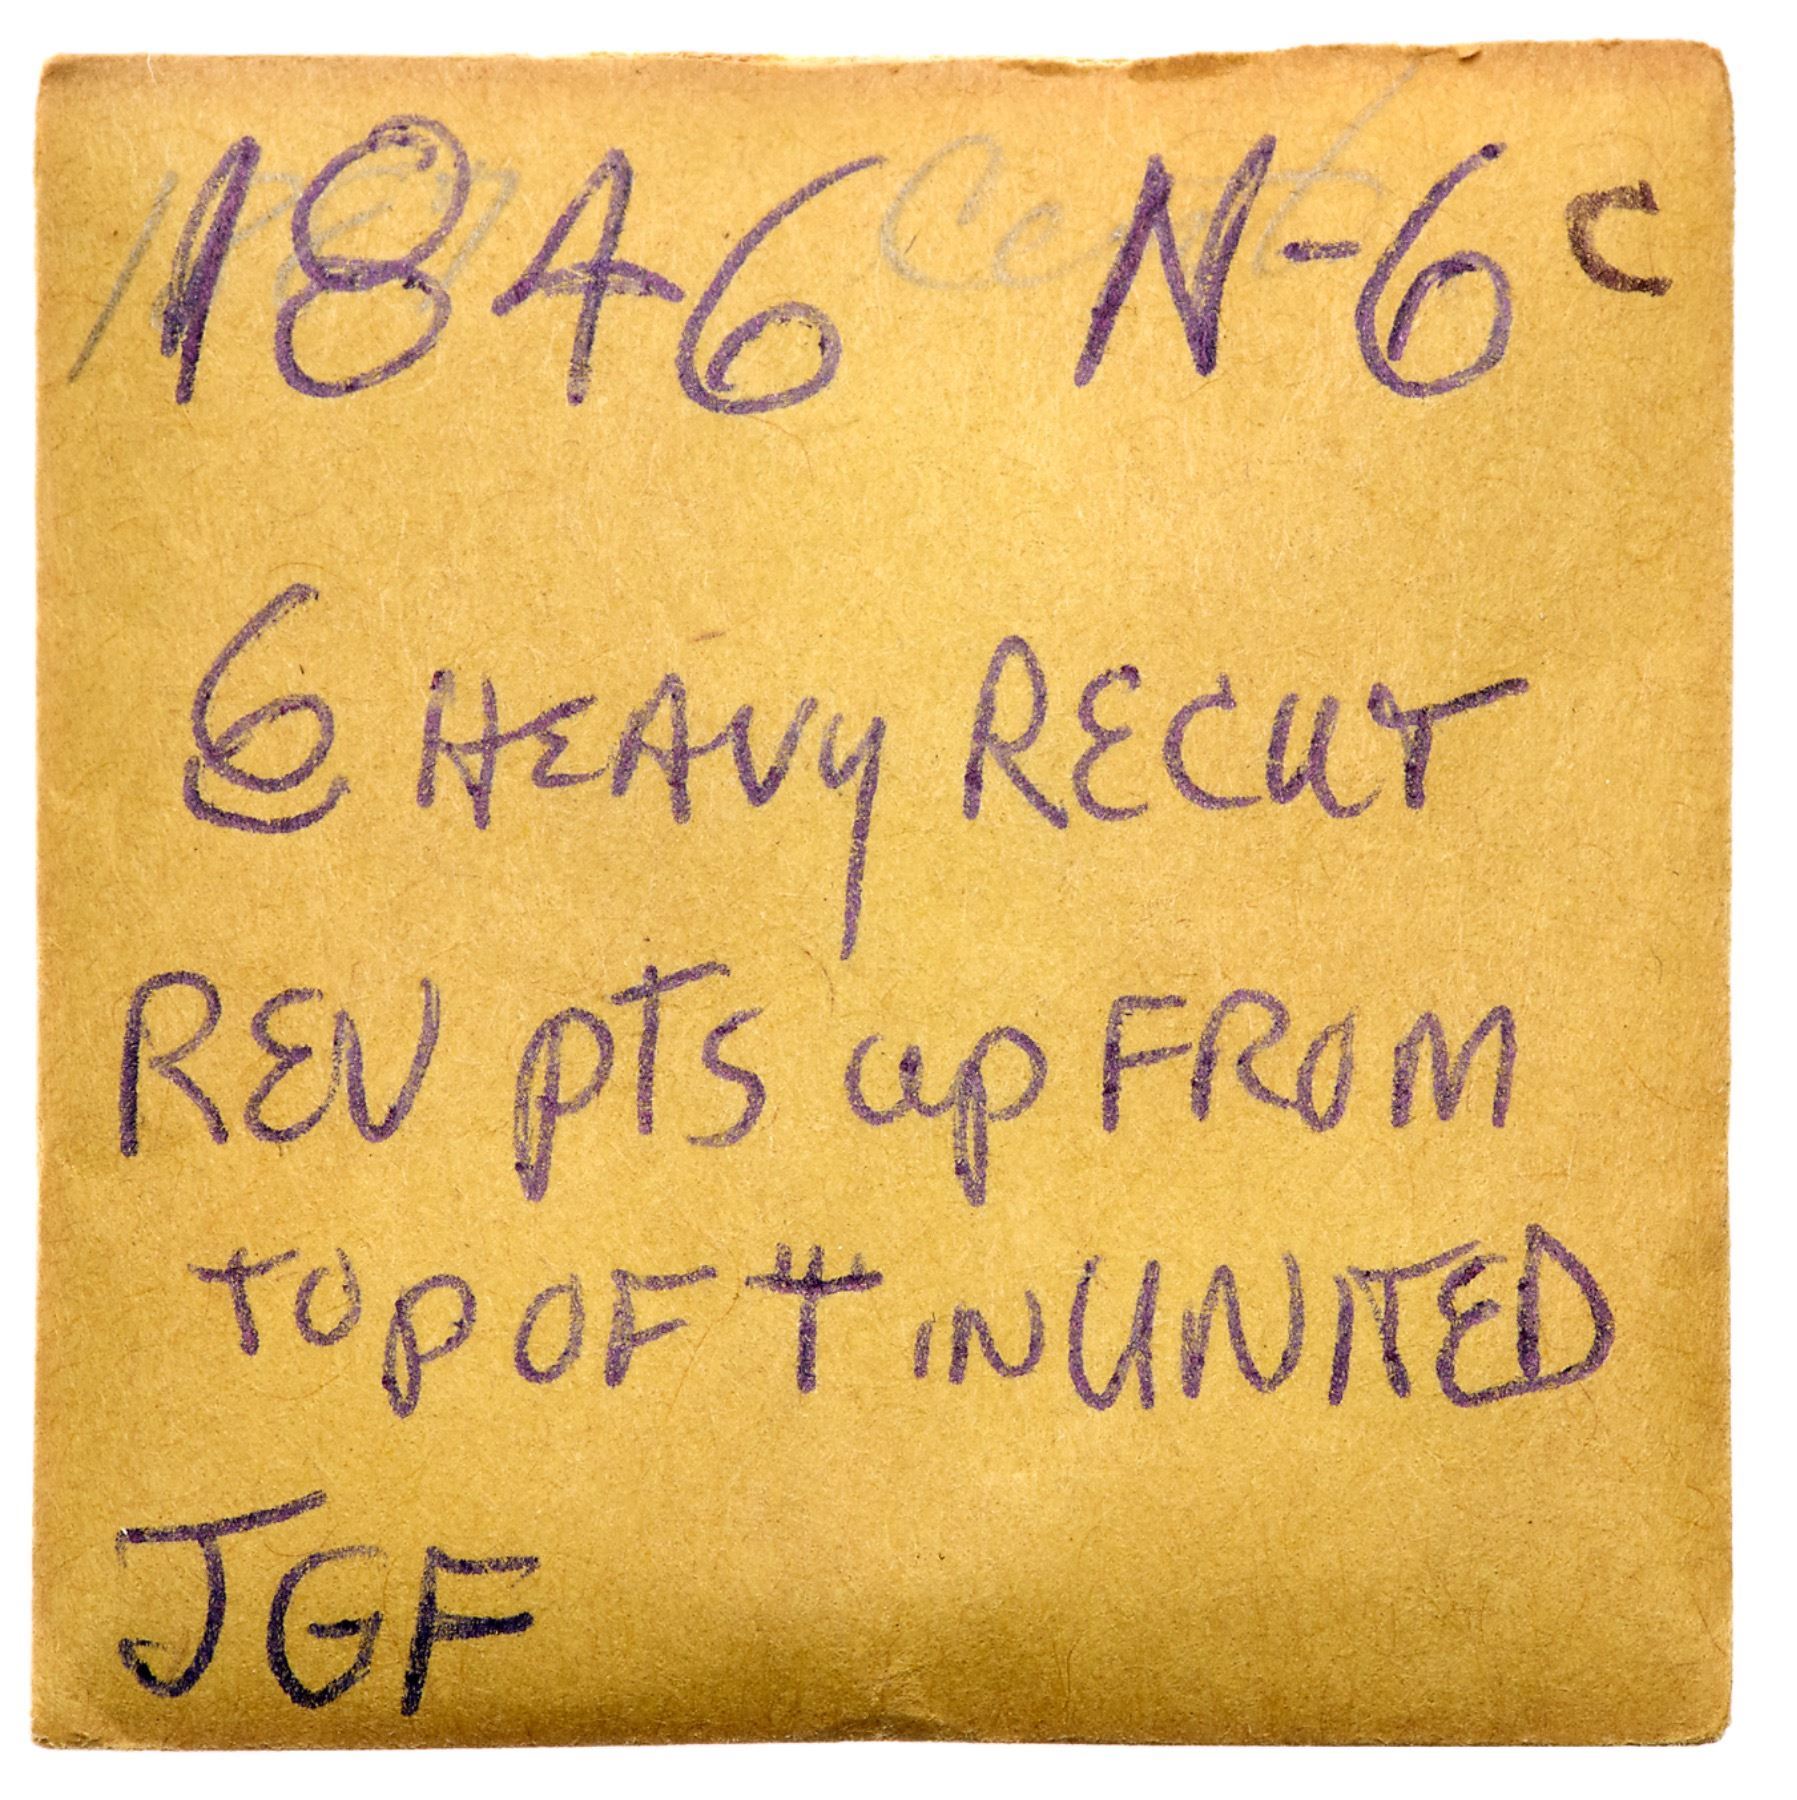 1846 N-6c
6 HEAVY RECUT
REV pTS up FROM
TOP OF T IN UNITED
JGF